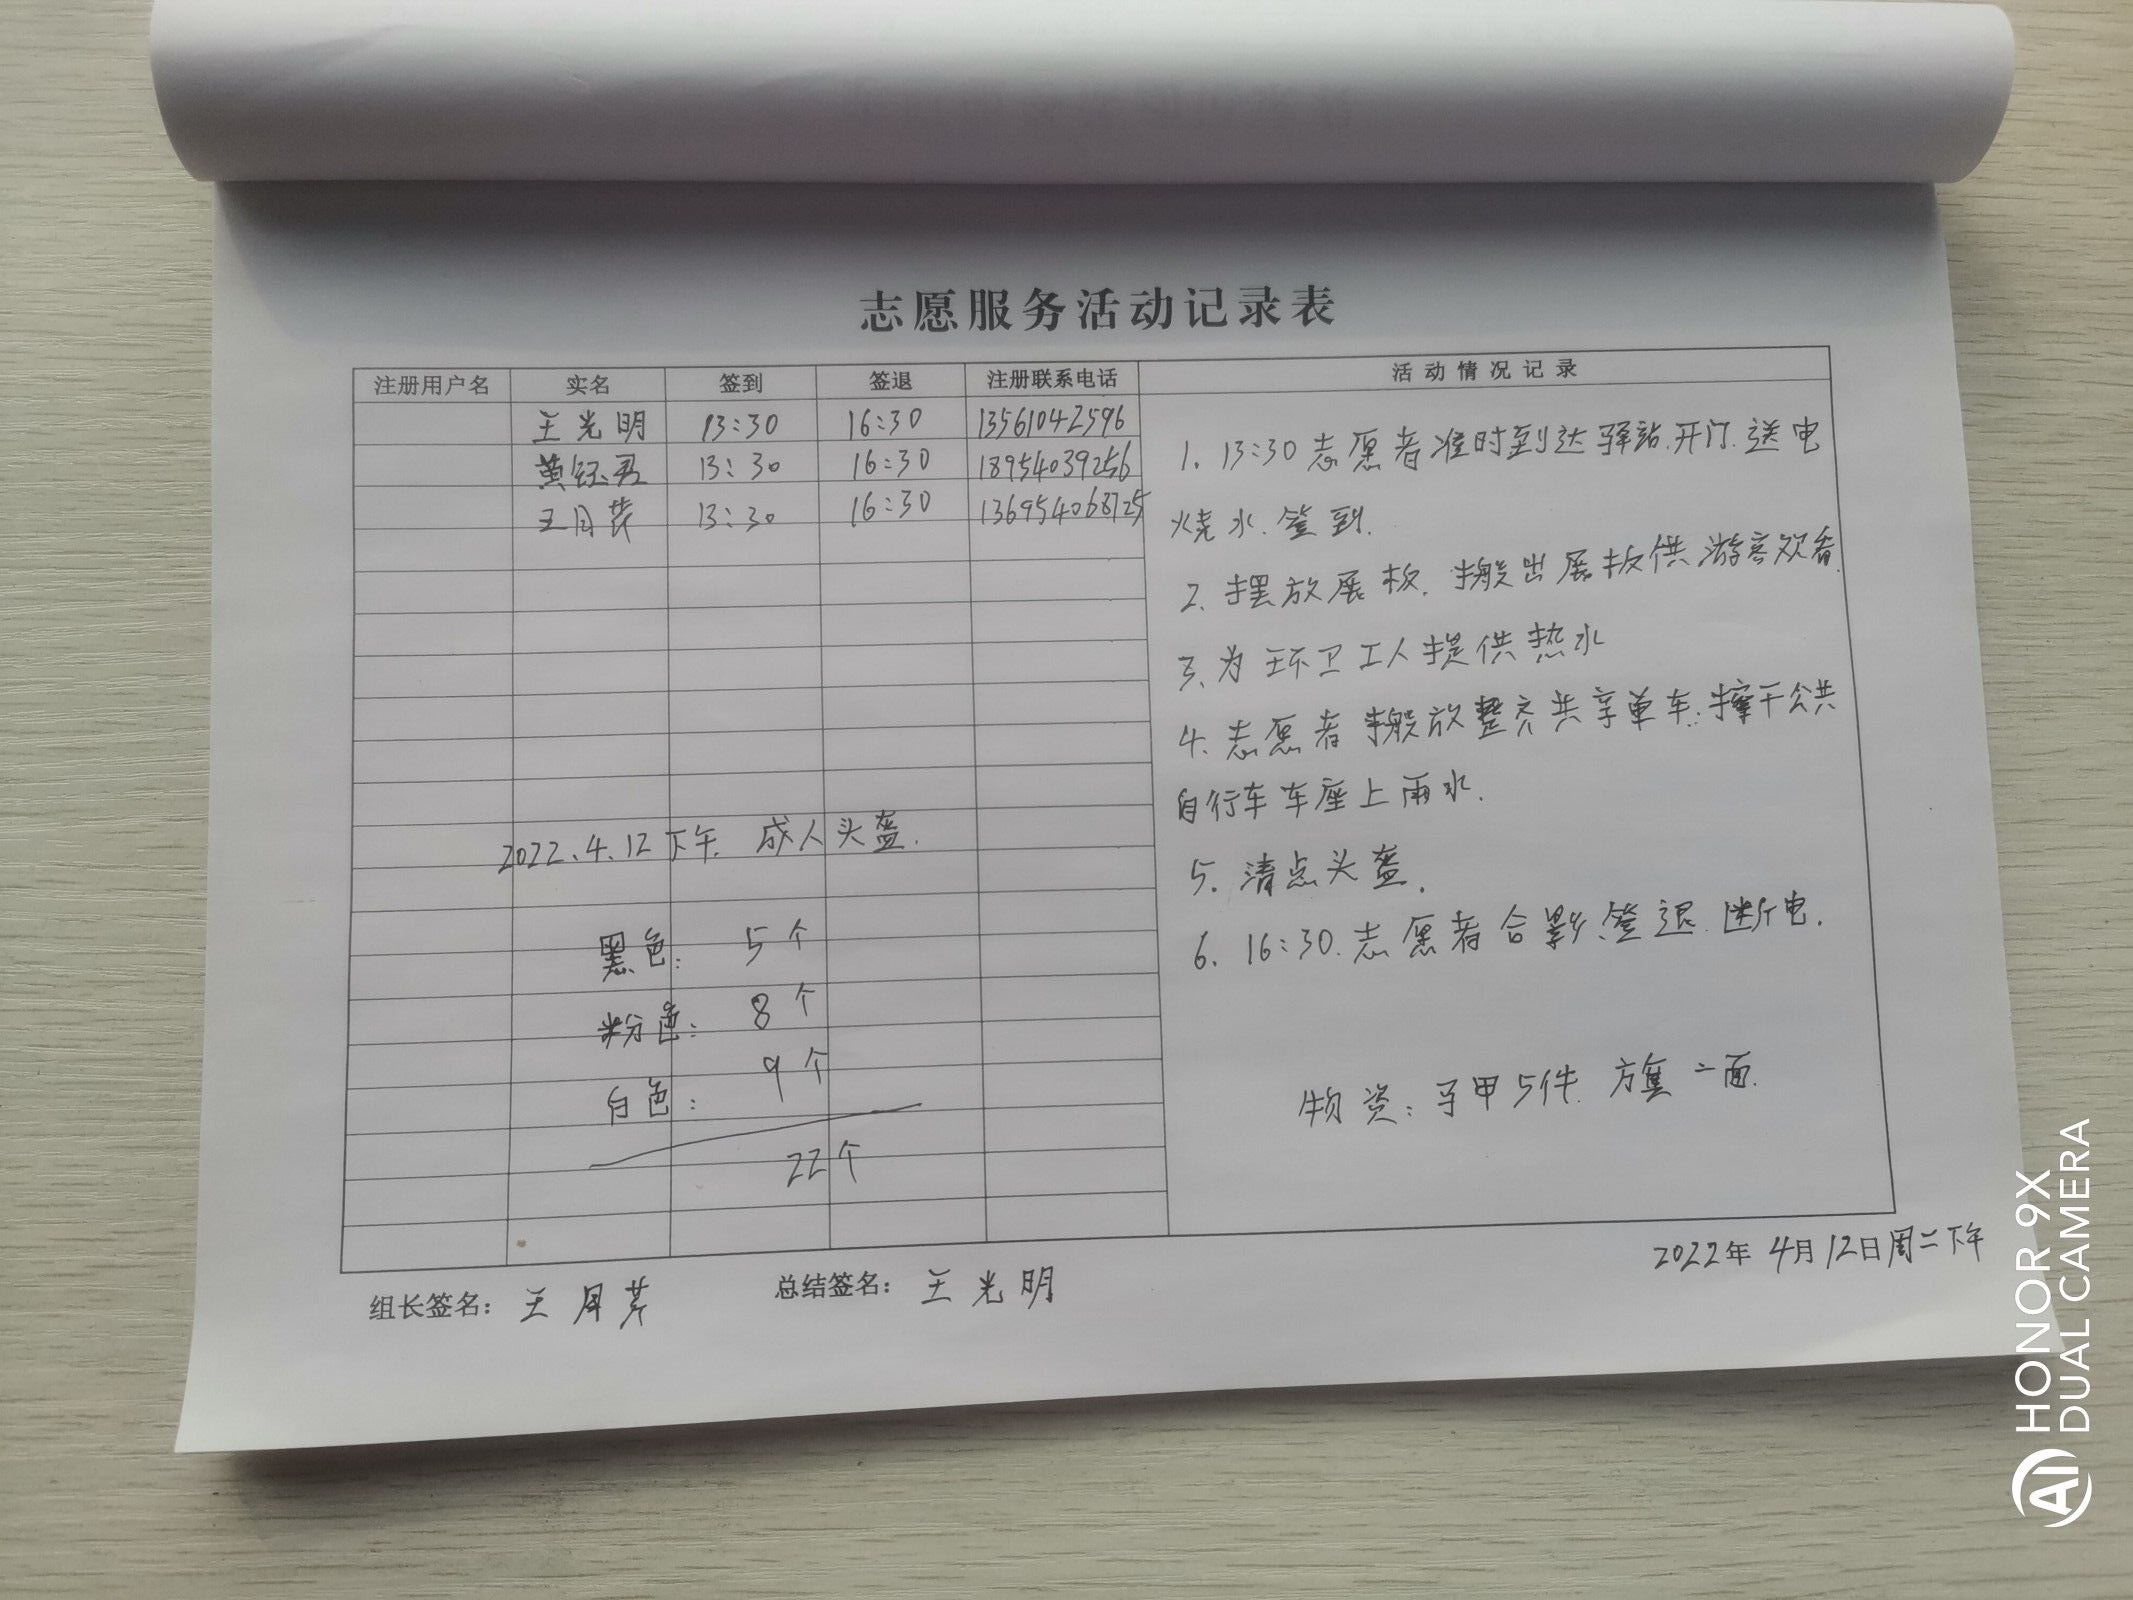 志愿服务活动记录表
注册用户名 实名 签到 签退 注册联系电话 活动情况记录
王光明 13:30 16:30 13561042596
黄钰君 13:30 16:30 18954039256
王月芹 13:30 16:30 136954068725
1. 13:30志愿者准时到达驿站.开门.送电
烧水.签到.
2. 摆放展板.搬出展板供游客观看.
3. 为环卫工人提供热水
4. 志愿者搬放整齐共享单车.擦干公共
自行车车座上雨水.
5. 清点头盔.
6. 16:30.志愿者合影.签退.断电.
物资:马甲5件.方旗二面.
2022.4.12下午.成人头盔.
黑色: 5个
粉色: 8个
白色: 9个
22个
组长签名: 王月芹 总结签名: 王光明
2022年4月12日周二下午
HONOR 9X
AI DUAL CAMERA